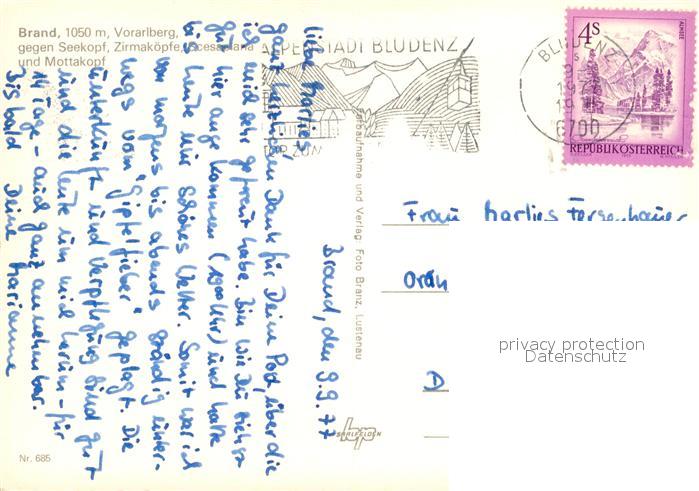 Brand, 1050 m, Vorarlberg,
gegen Seekopf, Zirmaköpfe, Scesaplana
und Mottakopf
ALPENSTADT BLUDENZ
BLUDENZ
6700
4S
ALMSEE
REPUBLIK ÖSTERREICH
Brand, den 9.9.77
Liebe Marlies,
ganz herzlichen Dank für Deine Post, über die
ich mich sehr gefreut habe. Bin wie Du siehst
gut hier angekommen (19 00 Uhr) und hatte
bis heute nur schönes Wetter. Somit war ich
von morgens bis abends ständig unter-
wegs vom "Gipfelfieber" geplagt. Die
Unterkunft und Verpflegung sind gut
und die Leute um mich herum - für
14 Tage - auch ganz annehmbar.
Bis bald Deine Marianne
Farbaufnahme und Verlag: Foto Branz, Lustenau
Frau Marlies
D
privacy protection
Datenschutz
SAALFELDEN
Nr. 685